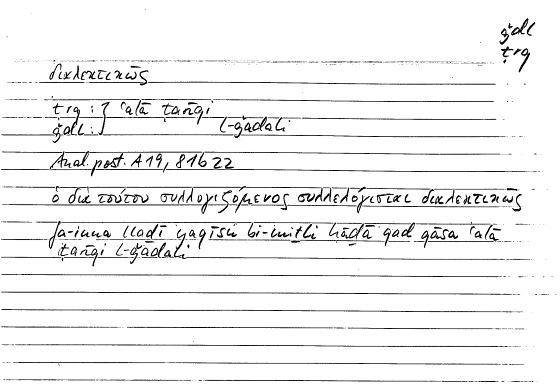 ǧdl
ṭrq
διαλεκτικῶς
ṭrq : } ʿalā ṭarīqi
ǧdl : } l-ǧadali
Anal. post. A 19, 81b22
ὁ διὰ τούτου συλλογιζόμενος συλλελόγισται διαλεκτικῶς
fa-inna lladī yaqīsu bi-miṯli hāḏā qad qāsa ʿalā
ṭarīqi l-ǧadali